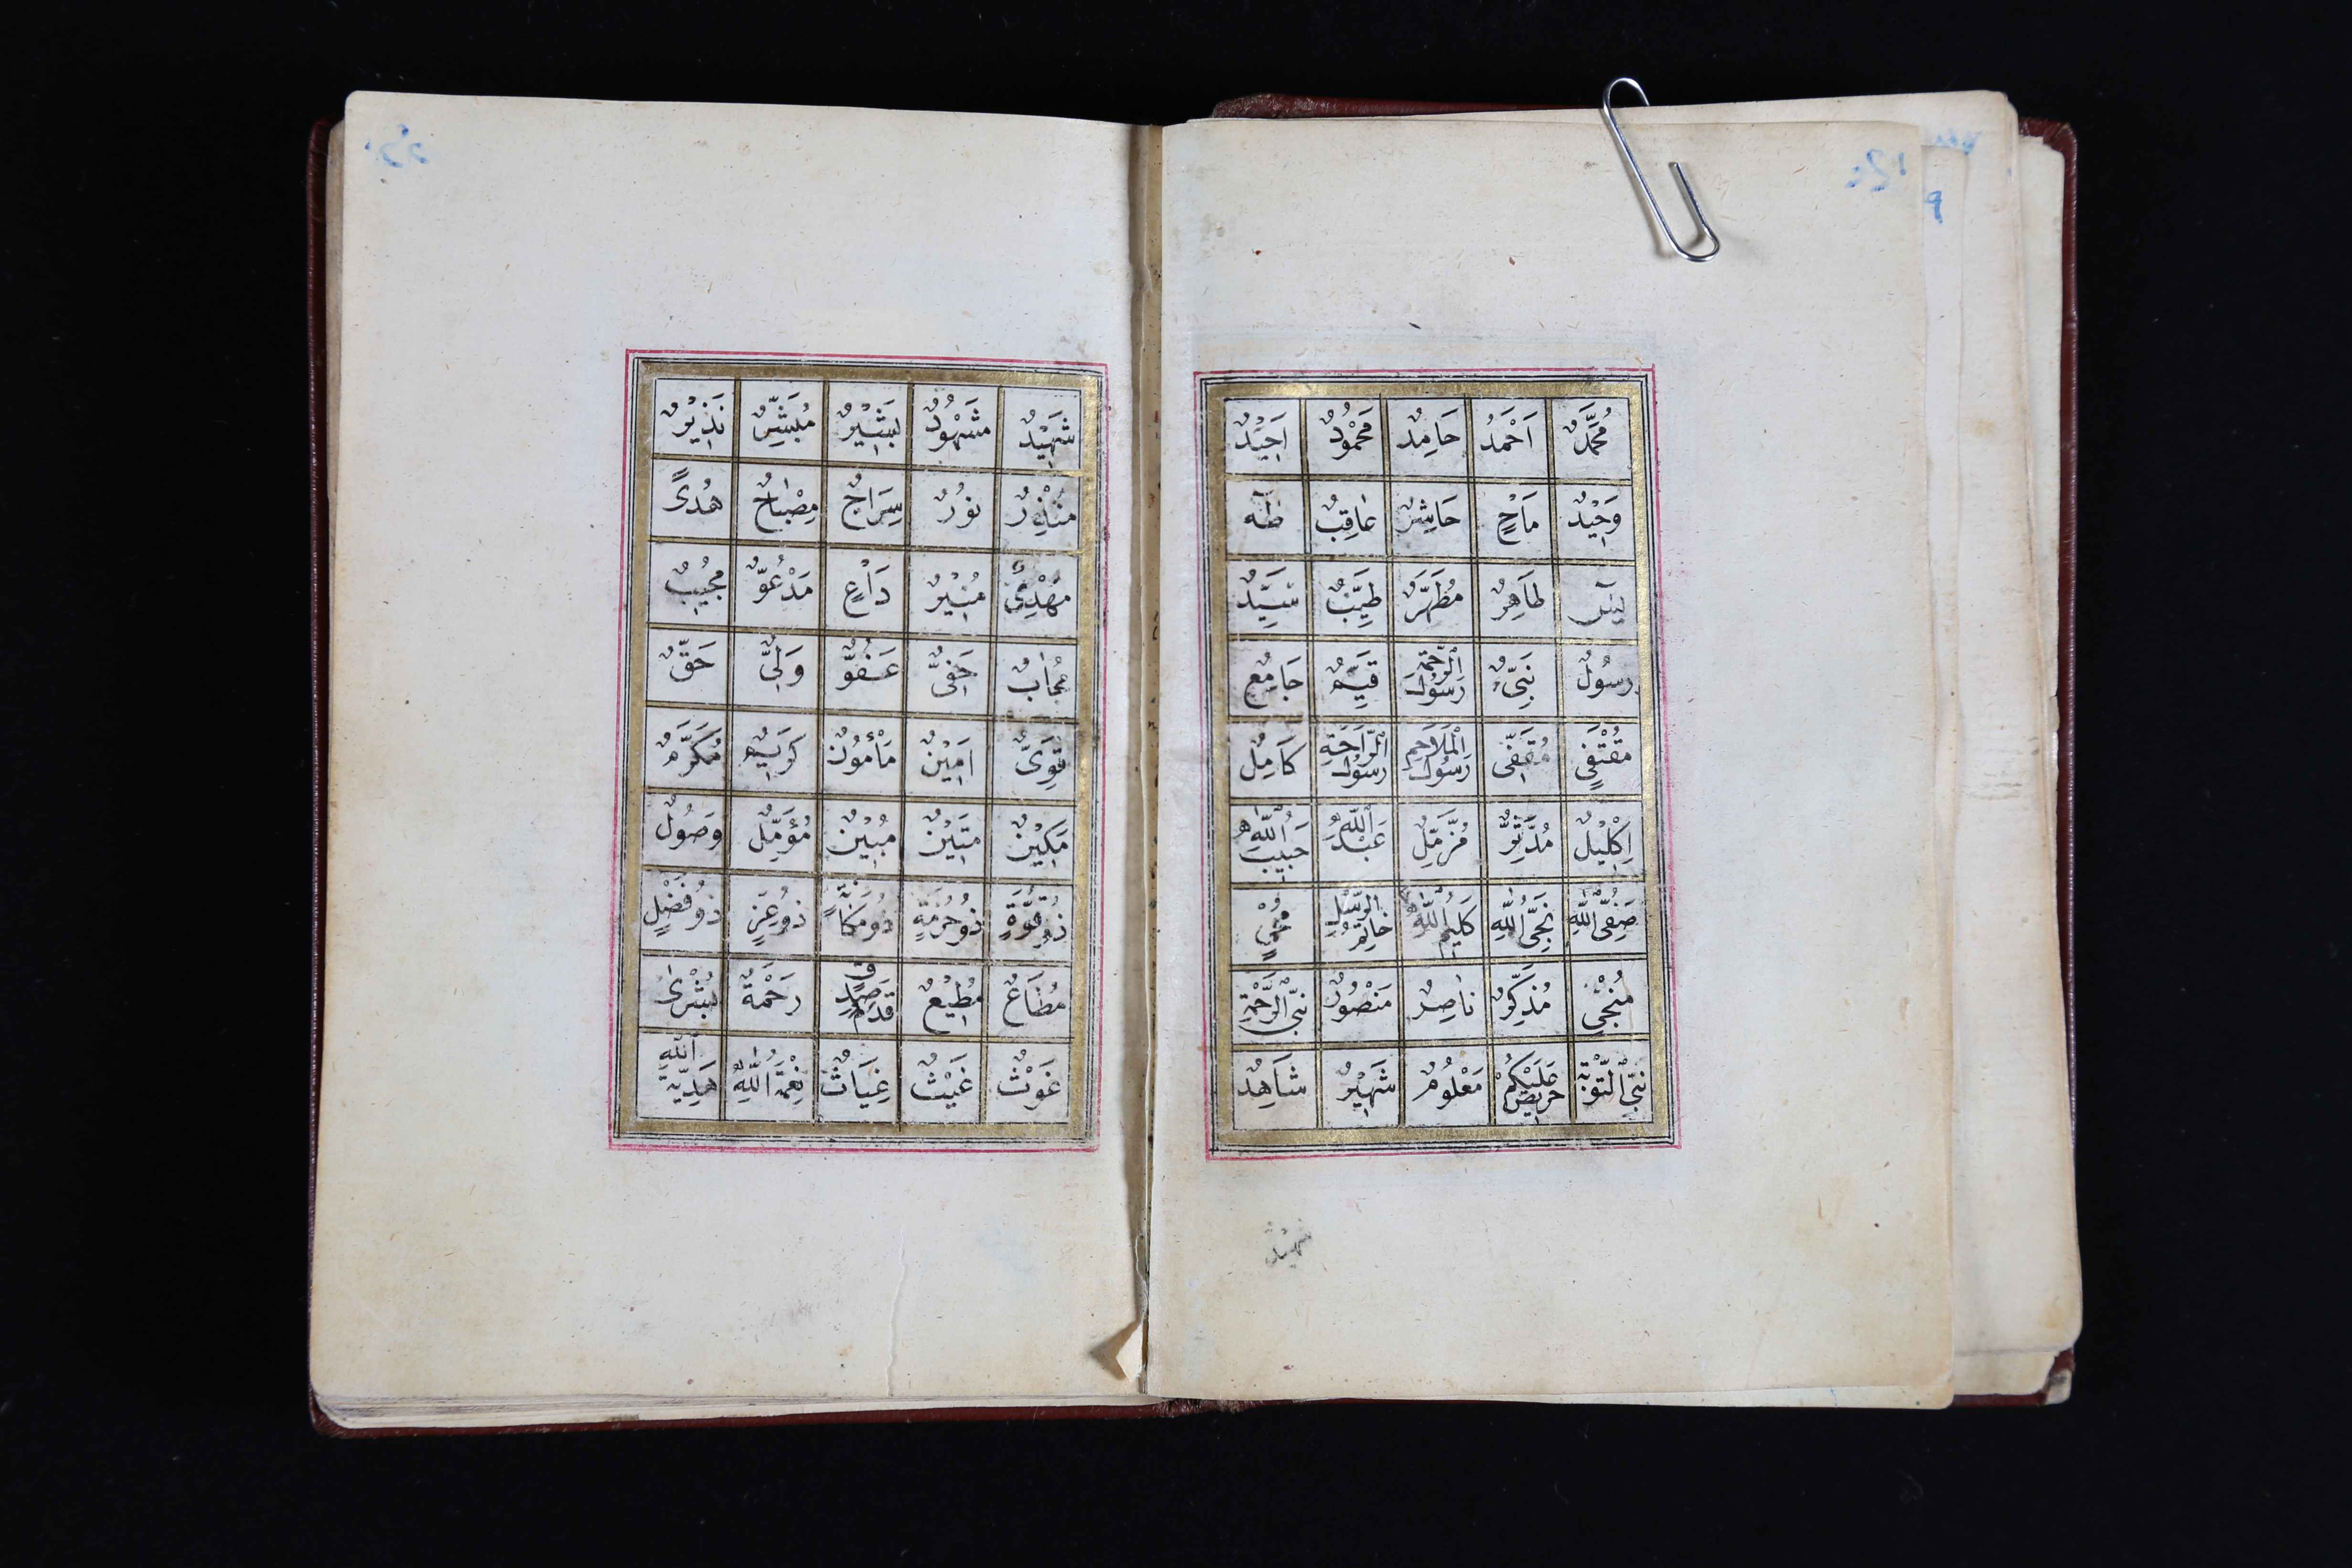 مُحَمَّدٌ اَحْمَدُ حَامِدٌ مَحْمُودٌ اَحِيْدٌ
وَحِيْدٌ مَاحٍ حَاشِرٌ عَاقِبٌ طٰهٰ
يٰسٓ طَاهِرٌ مُطَهَّرٌ طَيِّبٌ سَيِّدٌ
رَسُولٌ نَبِيٌّ رَسُولُ الرَّحْمَةِ قَيِّمٌ جَامِعٌ
مُقْتَفٍ مُقَفِّى رَسُولُ الْمَلَاحِمِ رَسُولُ الرَّاحَةِ كَامِلٌ
اِكْلِيْلٌ مُدَّثِّرٌ مُزَّمِّلٌ عَبْدُ اللّٰهِ حَبِيبُ اللّٰهِ
صَفِىُّ اللّٰهِ نَجِىُّ اللّٰهِ كَلِيمُ اللّٰهِ خَاتِمُ الرُّسُلِ مُحْىٍ
مُنْجٍى مُذَكِّرٌ نَاصِرٌ مَنْصُورٌ نَبِىُّ الرَّحْمَةِ
نَبِىُّ التَّوْبَةِ حَرِيصٌ عَلَيْكُمْ مَعْلُومٌ شَهِيْرٌ شَاهِدٌ
شَهِيْدٌ
شَهِيْدٌ مَشْهُودٌ بَشِيْرٌ مُبَشِّرٌ نَذِيْرٌ
مُنْذِرٌ نُورٌ سِرَاجٌ مِصْبَاحٌ هُدًى
مَهْدِىٌّ مُنِيْرٌ دَاعٍ مَدْعُوٌّ مُجِيْبٌ
مُجَابٌ حَفِىٌّ عَفُوٌّ وَلِىٌّ حَقٌّ
قَوِىٌّ اَمِيْنٌ مَأْمُونٌ كَرِيمٌ مُكَرَّمٌ
مَكِيْنٌ مَتِيْنٌ مُبِيْنٌ مُؤَمِّلٌ وَصُولٌ
ذُو قُوَّةٍ ذُو حُرْمَةٍ ذُو مَكَانَةٍ ذُو عِزٍّ ذُو فَضْلٍ
مُطَاعٌ مُطِيْعٌ قَدَمُ صِدْقٍ رَحْمَةٌ بُشْرٰى
غَوْثٌ غَيْثٌ غِيَاثٌ نِعْمَةُ اللّٰهِ هَدِيَّةُ اللّٰهِ